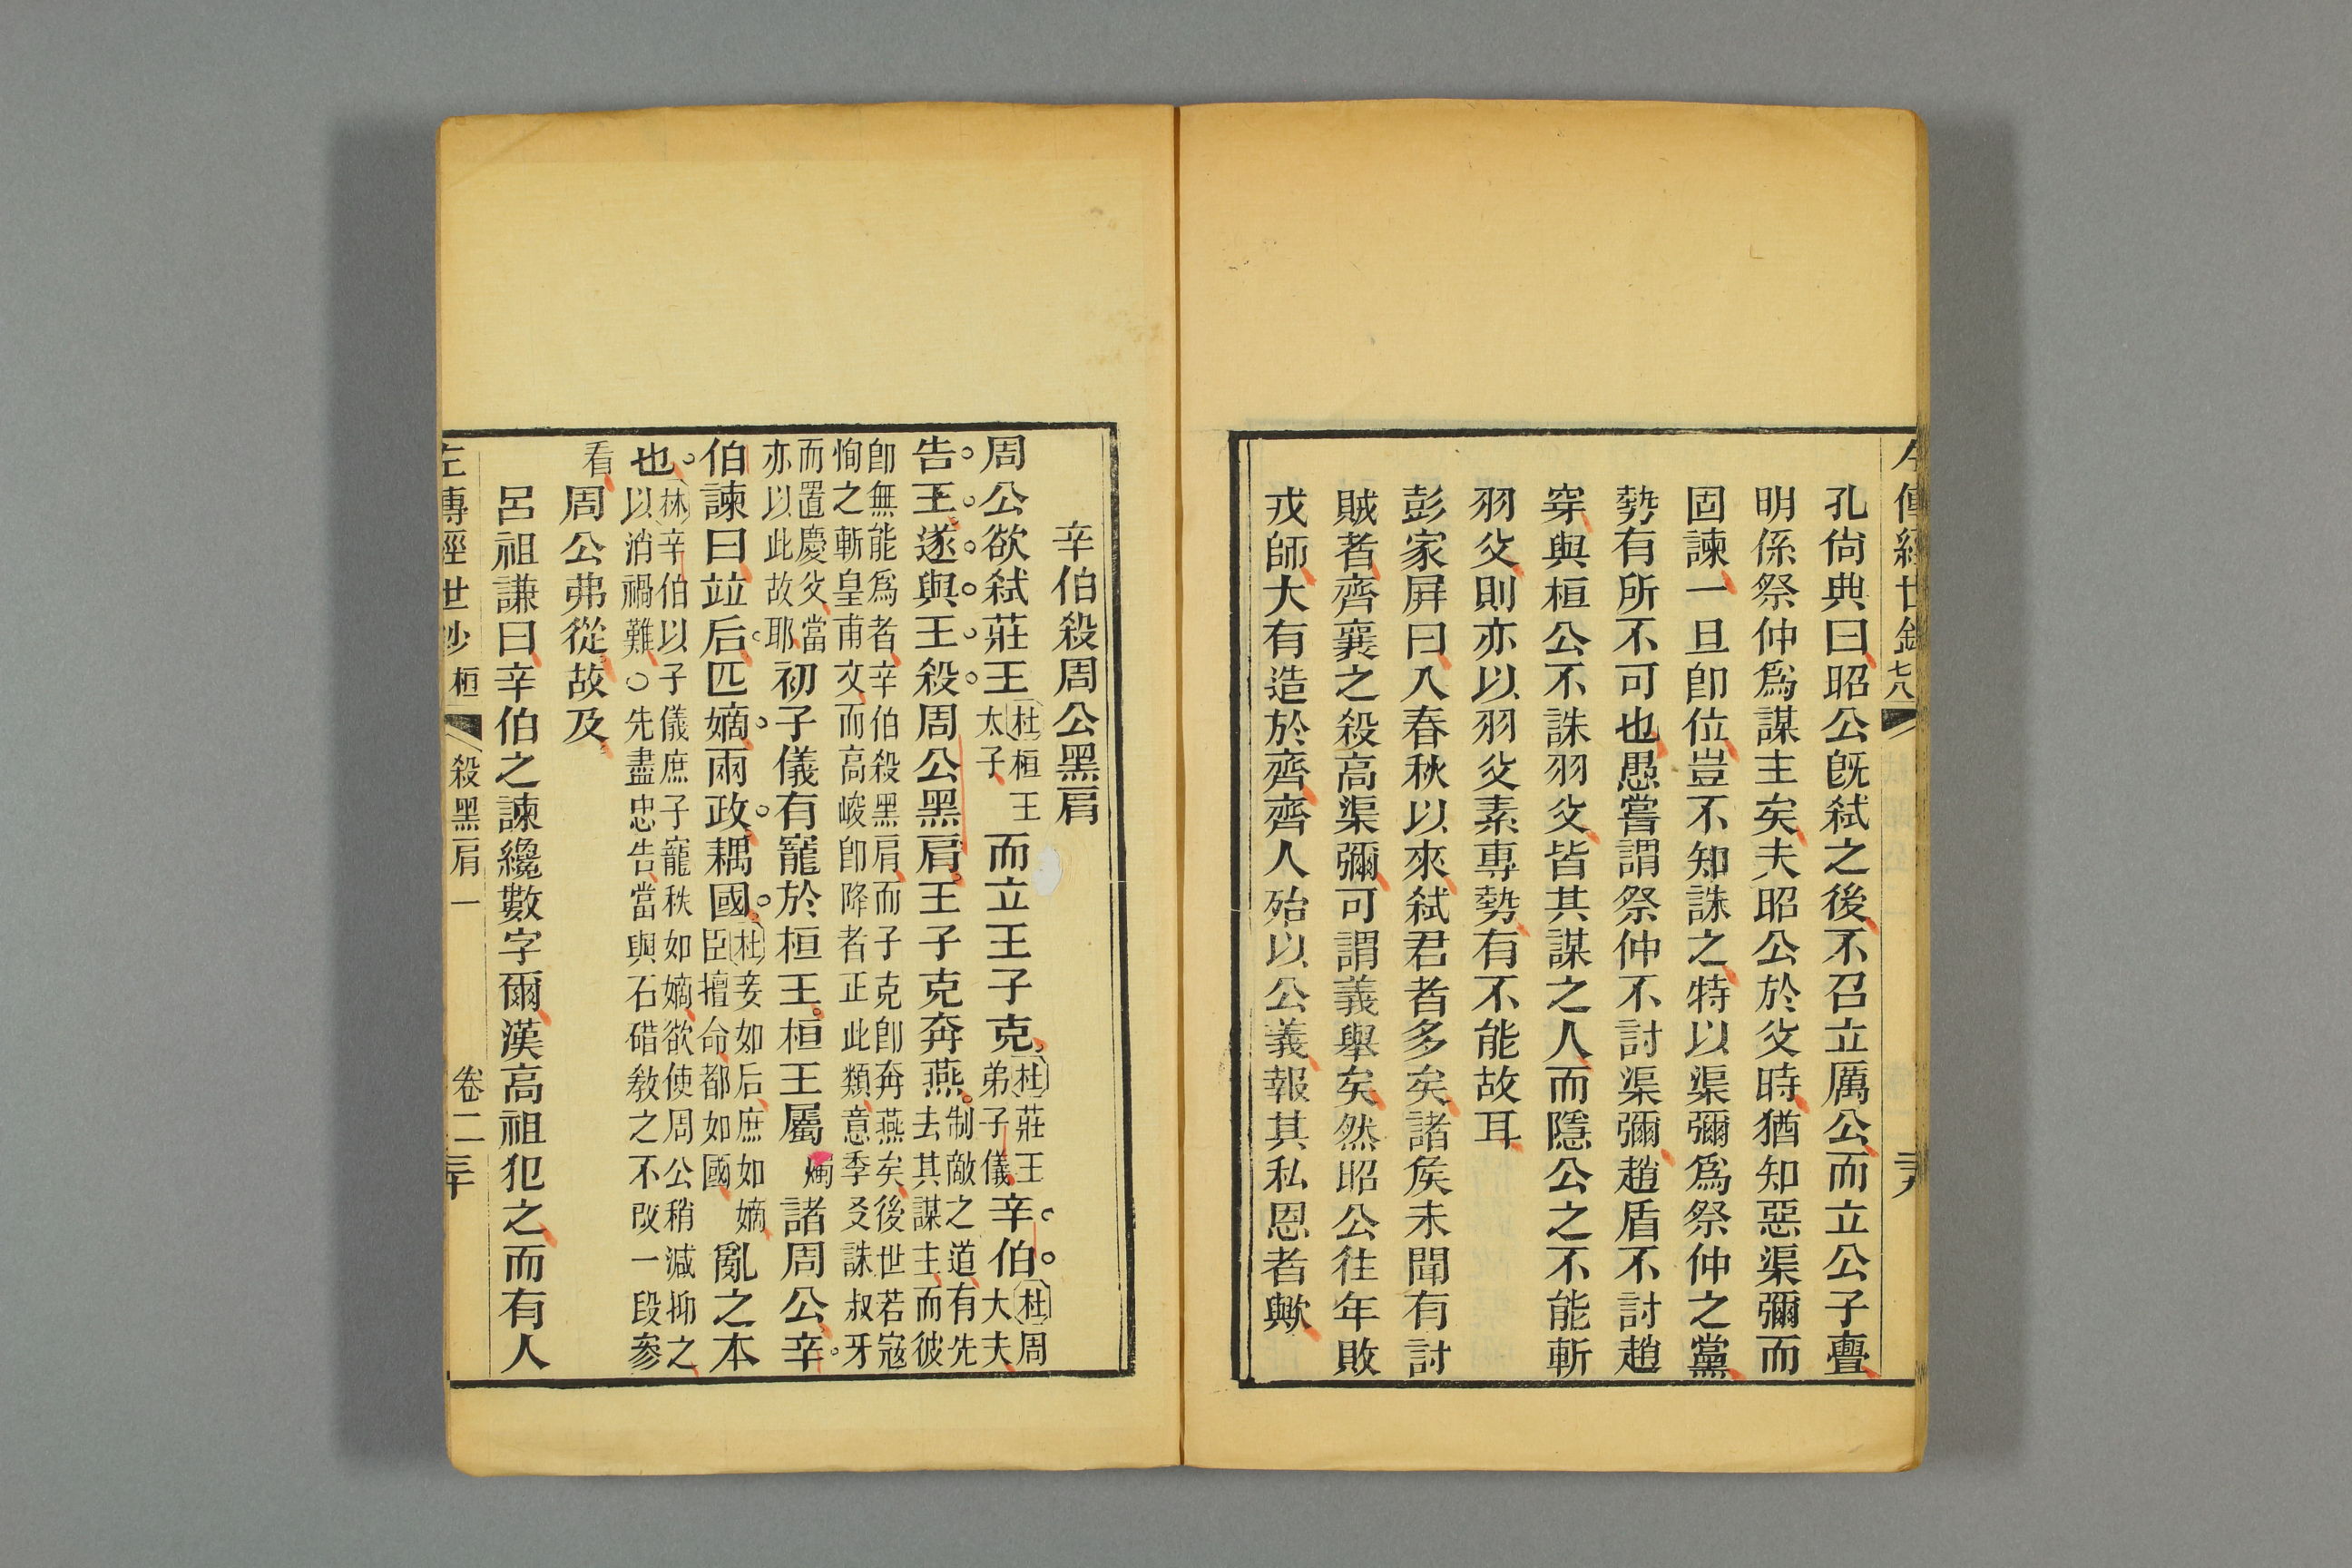 傳經世
孔尙典曰昭公旣弒之後不召立厲公而立公子亹
明係祭仲爲謀主矣夫昭公於父時猶知惡渠彌而
固諫一旦卽位豈不知誅之特以渠彌爲祭仲之黨
勢有所不可也愚嘗謂祭仲不討渠彌趙盾不討趙
穿與桓公不誅羽父皆其謀之人而隱公之不能斬
羽父則亦以羽父素專勢有不能故耳
彭家屏曰入春秋以來弒君者多矣諸侯未聞有討
賊者齊襄之殺高渠彌可謂義舉矣然昭公往年敗
戎師大有造於齊齊人殆以公義報其私恩者歟
辛伯殺周公黑肩
周公欲弒莊王杜桓王太子而立王子克杜莊王弟子儀辛伯杜周大夫
告王遂與王殺周公黑肩王子克奔燕制敵之道有先去其謀主而彼
卽無能爲者辛伯殺黑肩而子克卽奔燕矣後世若寇
恂之斬皇甫文而高峻卽降者正此類意季友誅叔牙
而置慶父當亦以此故耶初子儀有寵於桓王桓王屬燭諸周公辛
伯諫曰竝后匹嫡兩政耦國杜妾如后庶如嫡臣擅命都如國亂之本
也林辛伯以子儀庶子寵秩如嫡欲使周公稍減抑之
以消禍難○先盡忠告當與石碏敎之不改一段參
看周公弗從故及
呂祖謙曰辛伯之諫纔數字爾漢高祖犯之而有人
左傳經世鈔 桓 殺黑肩一 卷二 三十